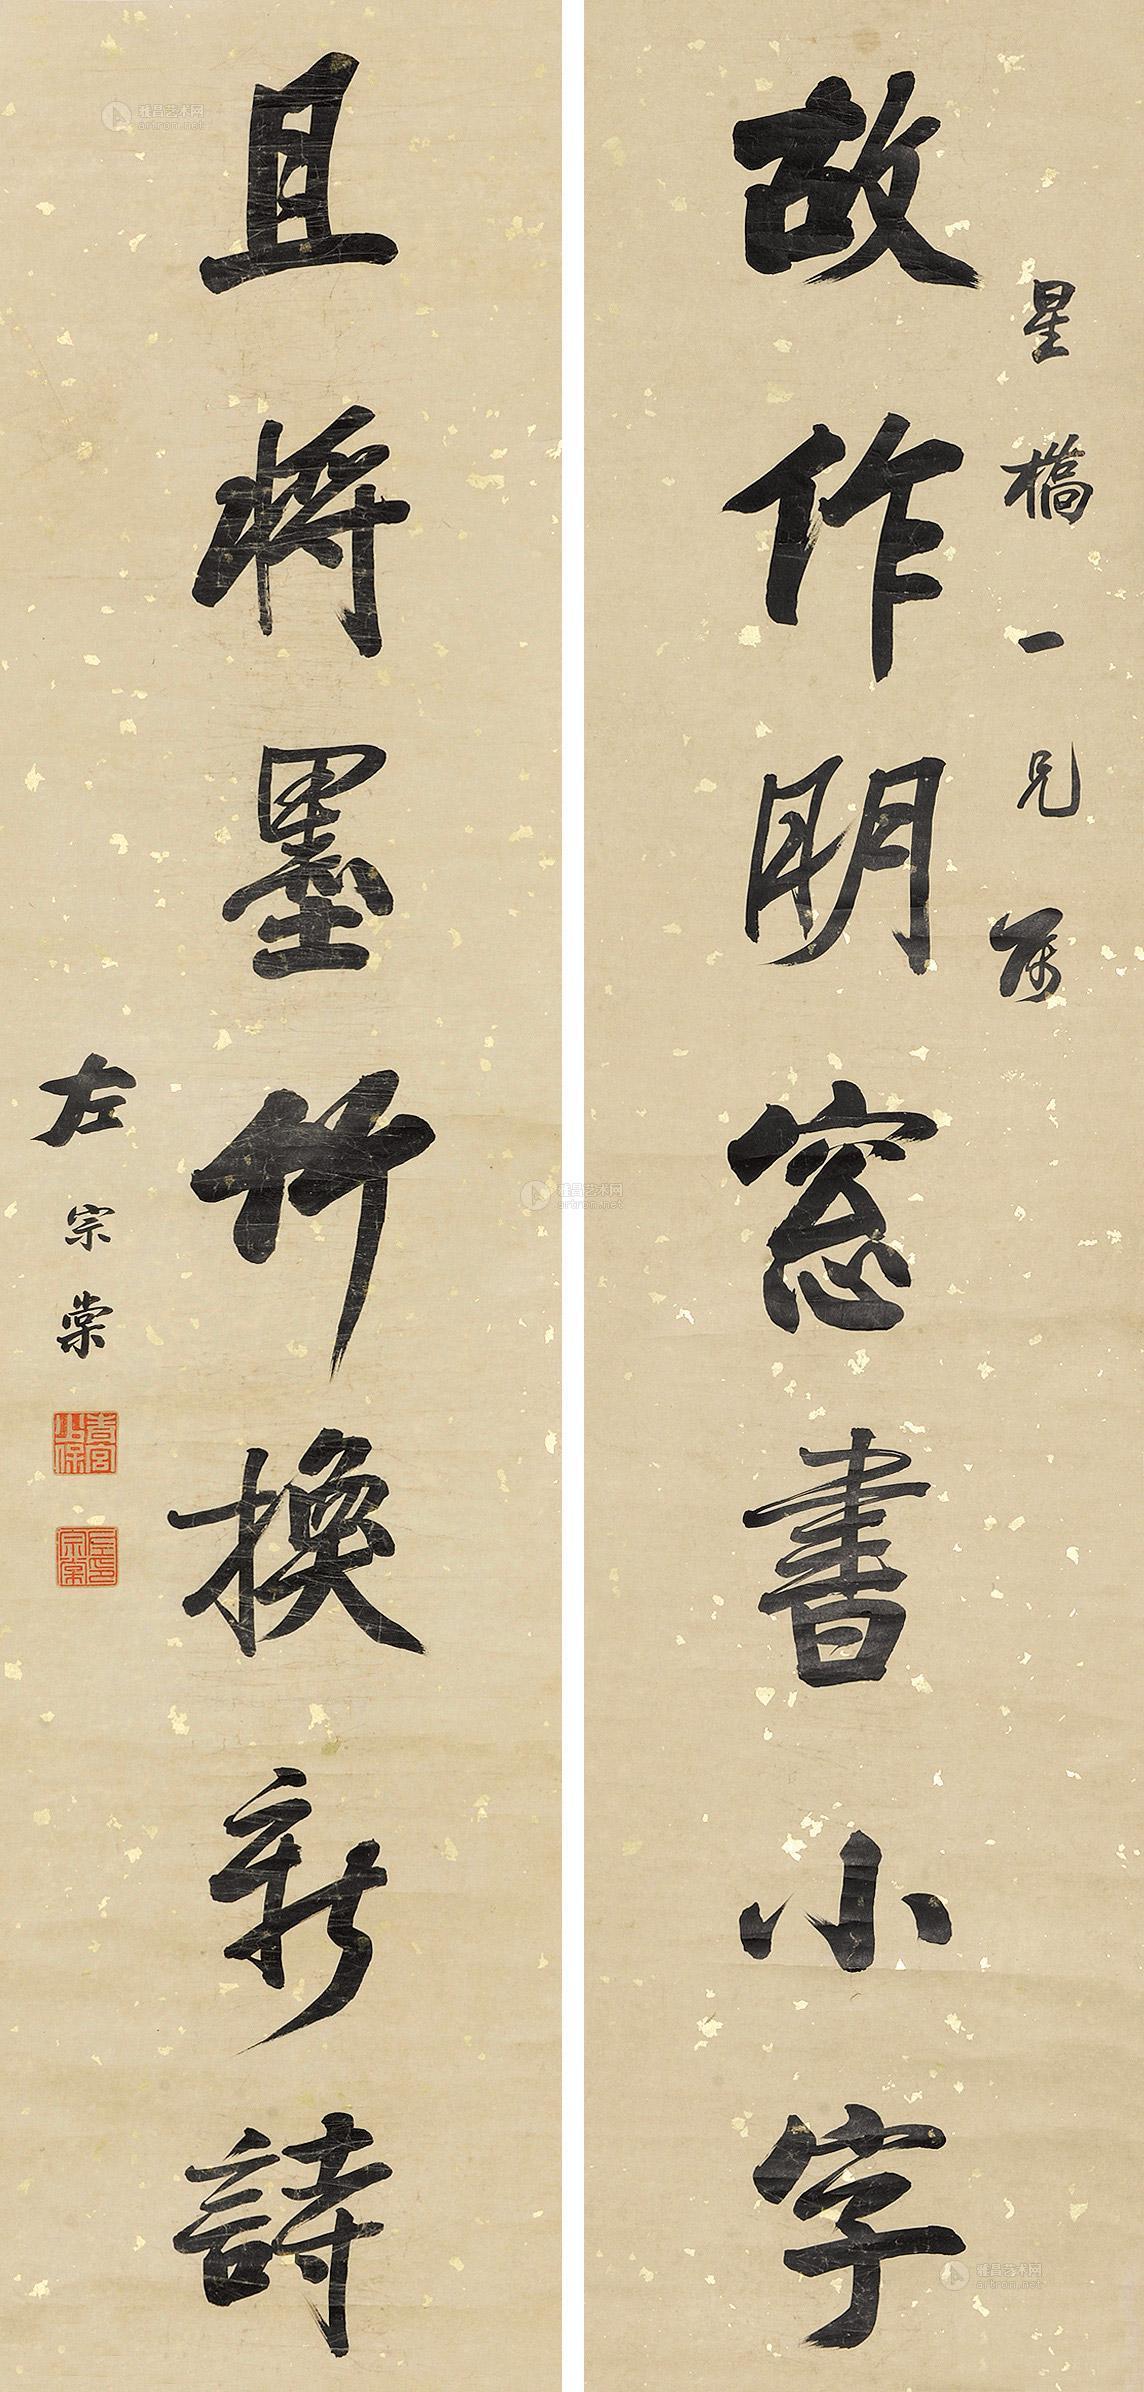 星橋一兄属
故作明窓書小字
且將墨竹換新詩
左宗棠
青宮少保
左宗棠印
雅昌艺术网
artron.net
雅昌艺术网
artron.net
雅昌艺术网
artron.net